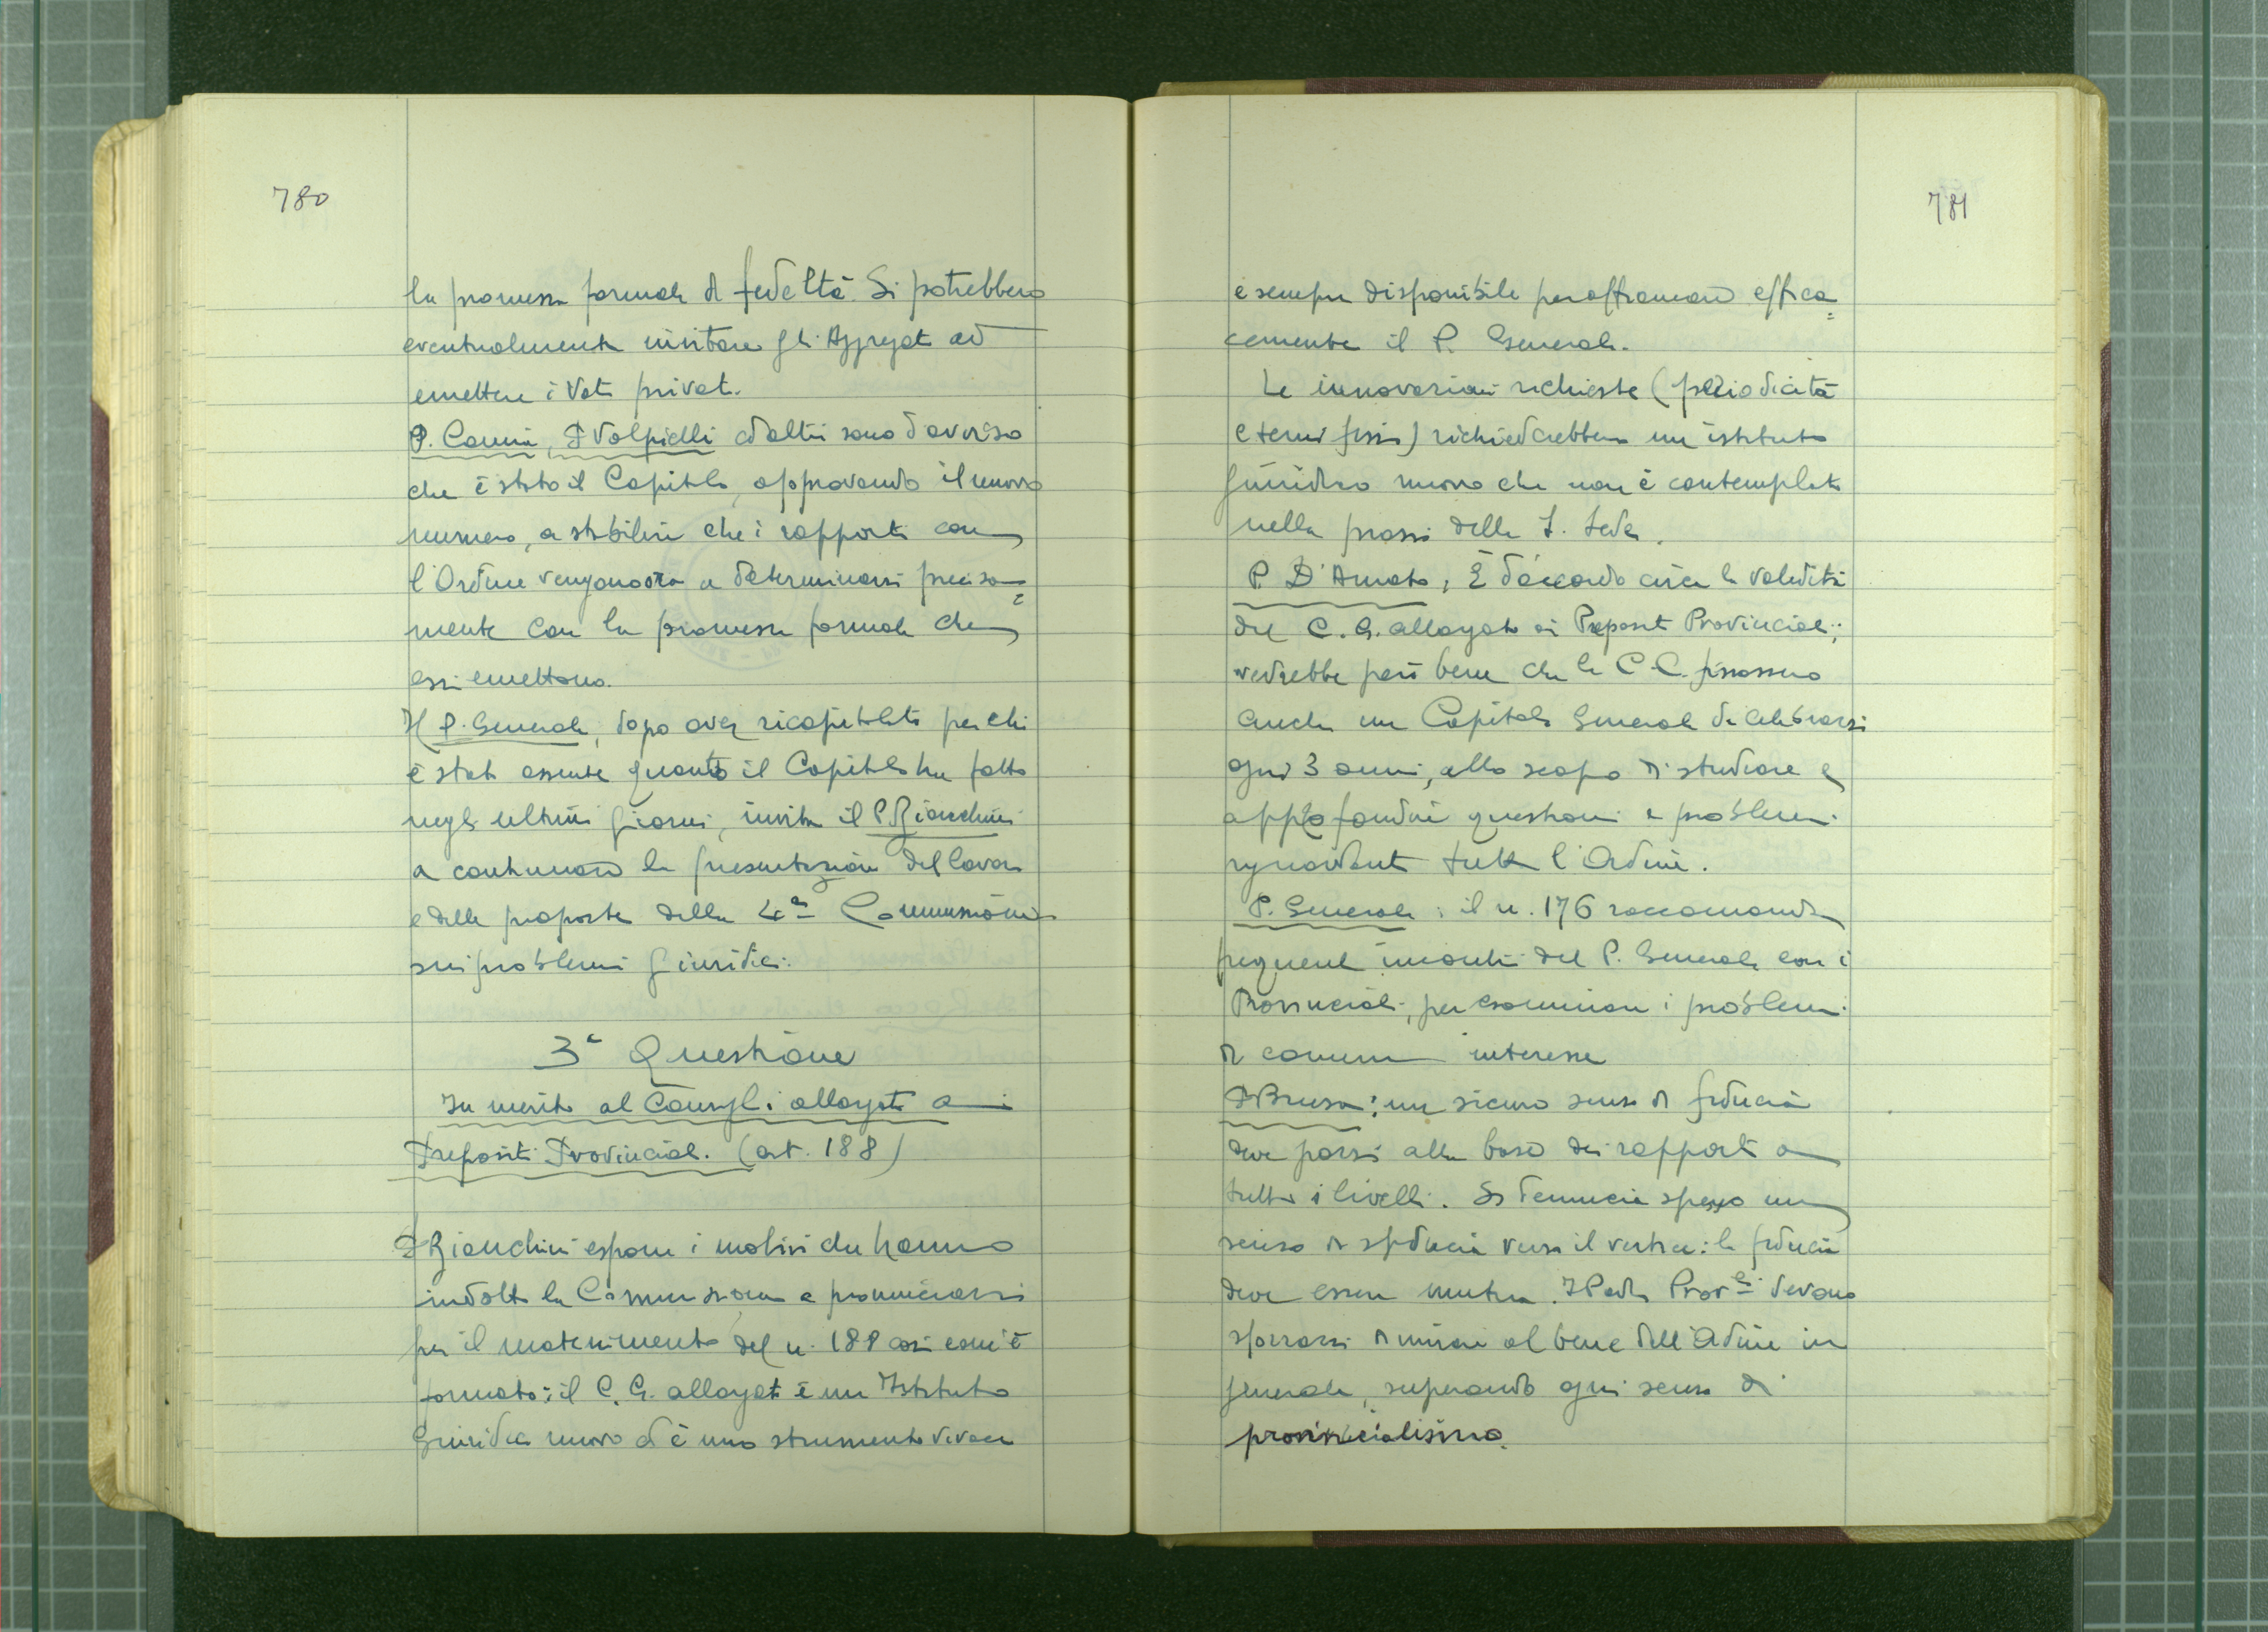 780
la promessa formale di fedeltà. Si potrebbero
eventualmente invitare gli Aggregati ad
emettere i Voti privati.
P. Cannia, P. Volpicelli ed altri sono d'avviso
che è stato il Capitolo, approvando il nuovo
numero, a stabilire che i rapporti con
l'Ordine vengano ora a determinarsi precisa=
mente con la promessa formale che
essi emettono.
Il P. Generale, dopo aver ricapitolato per chi
è stato assente quanto il Capitolo ha fatto
negli ultimi giorni, invita il P. Bianchini
a continuare la presentazione del lavoro
e delle proposte della 4a Commissione
sui problemi giuridici.
3a Questione
In merito al Consiglio allargato ai
Prepositi Provinciali. (art. 188)
P. Bianchini espone i motivi che hanno
indotto la Commissione a pronunciarsi
per il mantenimento del n. 188 così com'è
formato: il C. G. allargato è un Istituto
Giuridico nuovo ed è uno strumento vivace
781
e sempre disponibile per affiancare effica=
cemente il P. Generale.
Le innovazioni richieste (periodicità
e temi fissi) richiederebbero un istituto
giuridico nuovo che non è contemplato
nella prassi della S. Sede.
P. D'Amato: È d'accordo circa la validità
del C. G. allargato ai Prepositi Provinciali;
vedrebbe però bene che le C.C. fissassero
anche un Capitolo Generale da celebrarsi
ogni 3 anni, allo scopo di studiare e
approfondire questioni e problemi
riguardanti tutto l'Ordine.
P. Generale: il n. 176 raccomanda
frequenti incontri del P. Generale con i
Provinciali, per esaminare i problemi
di comune interesse
P. Brusa: un sicuro senso di fiducia
deve porsi alla base dei rapporti a
tutti i livelli. Si denuncia spesso un
senso di sfiducia verso il vertice: la fiducia
deve essere mutua. I Padri Prov.li devono
sforzarsi di mirare al bene dell'Ordine in
generale, superando ogni senso di
provincialismo.